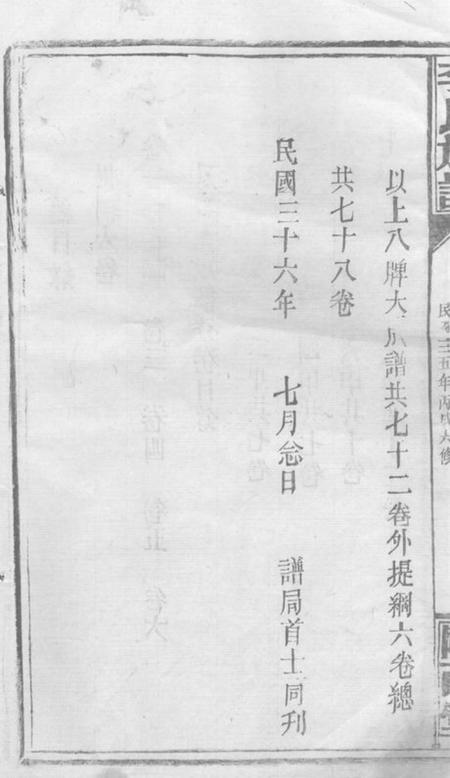 李氏族譜
民國三五年丙戌大修
以上八牌大成譜共七十二卷外提綱六卷總
共七十八卷
民國三十六年 七月念日 譜局首士同刋